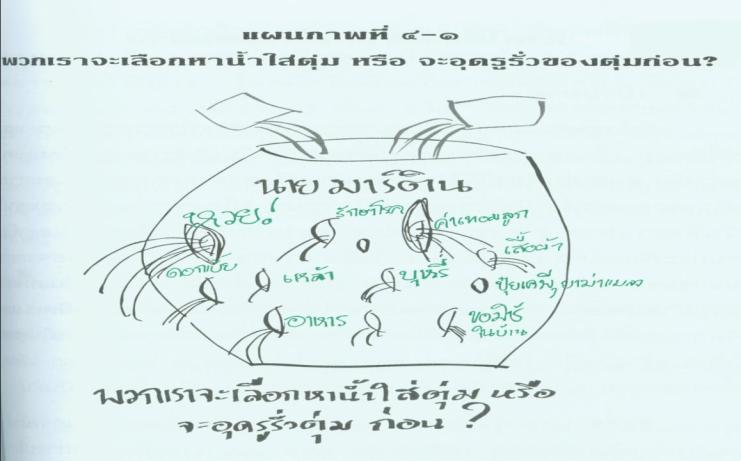 แผนภาพที่ ๔-๑
พวกเราจะเลือกหาน้ำใส่ตุ่ม หรือ จะอุดรูรั่วของตุ่มก่อน?
นาย มาร์ติน
หวย!
รักษาโรค
ค่าเทอมลูก
เสื้อผ้า
ดอกเบี้ย
เหล้า
บุหรี่
ปุ๋ยเคมี, ยาฆ่าแมลง
อาหาร
ของใช้
ในบ้าน
พวกเราจะเลือกหาน้ำใส่ตุ่ม หรือ
จะอุดรูรั่วตุ่ม ก่อน ?